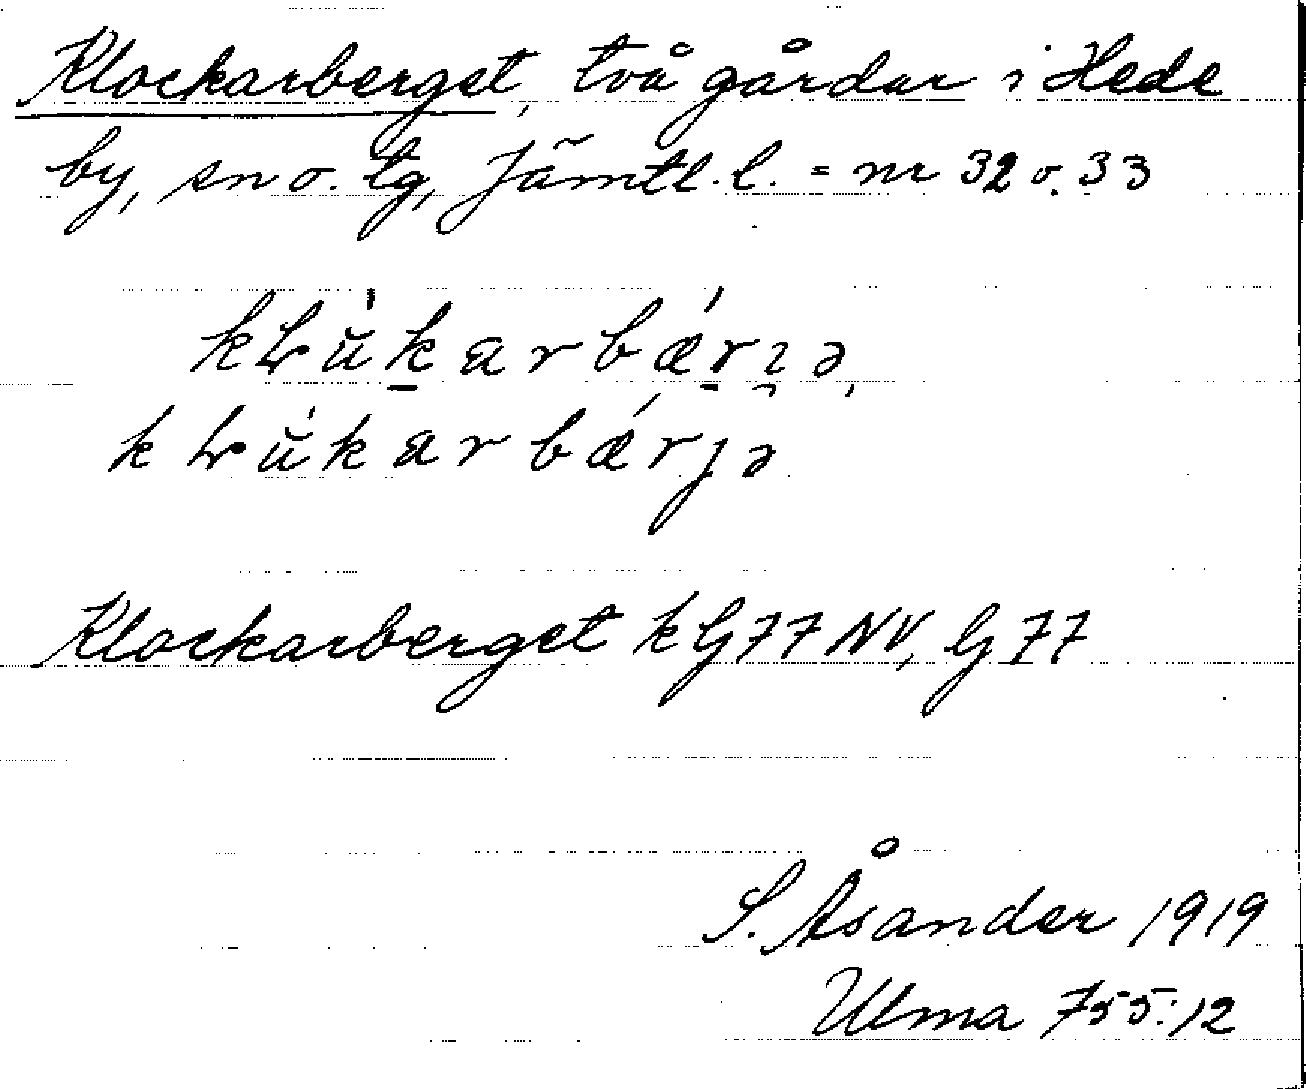 Klockarberget, två gårdar i Hede
by, sn o. tg, Jämtl. l. = nr 32 o. 33
Klockarberget k G77 NV, G 77
S. Åsander 1919
Ulma 755:12